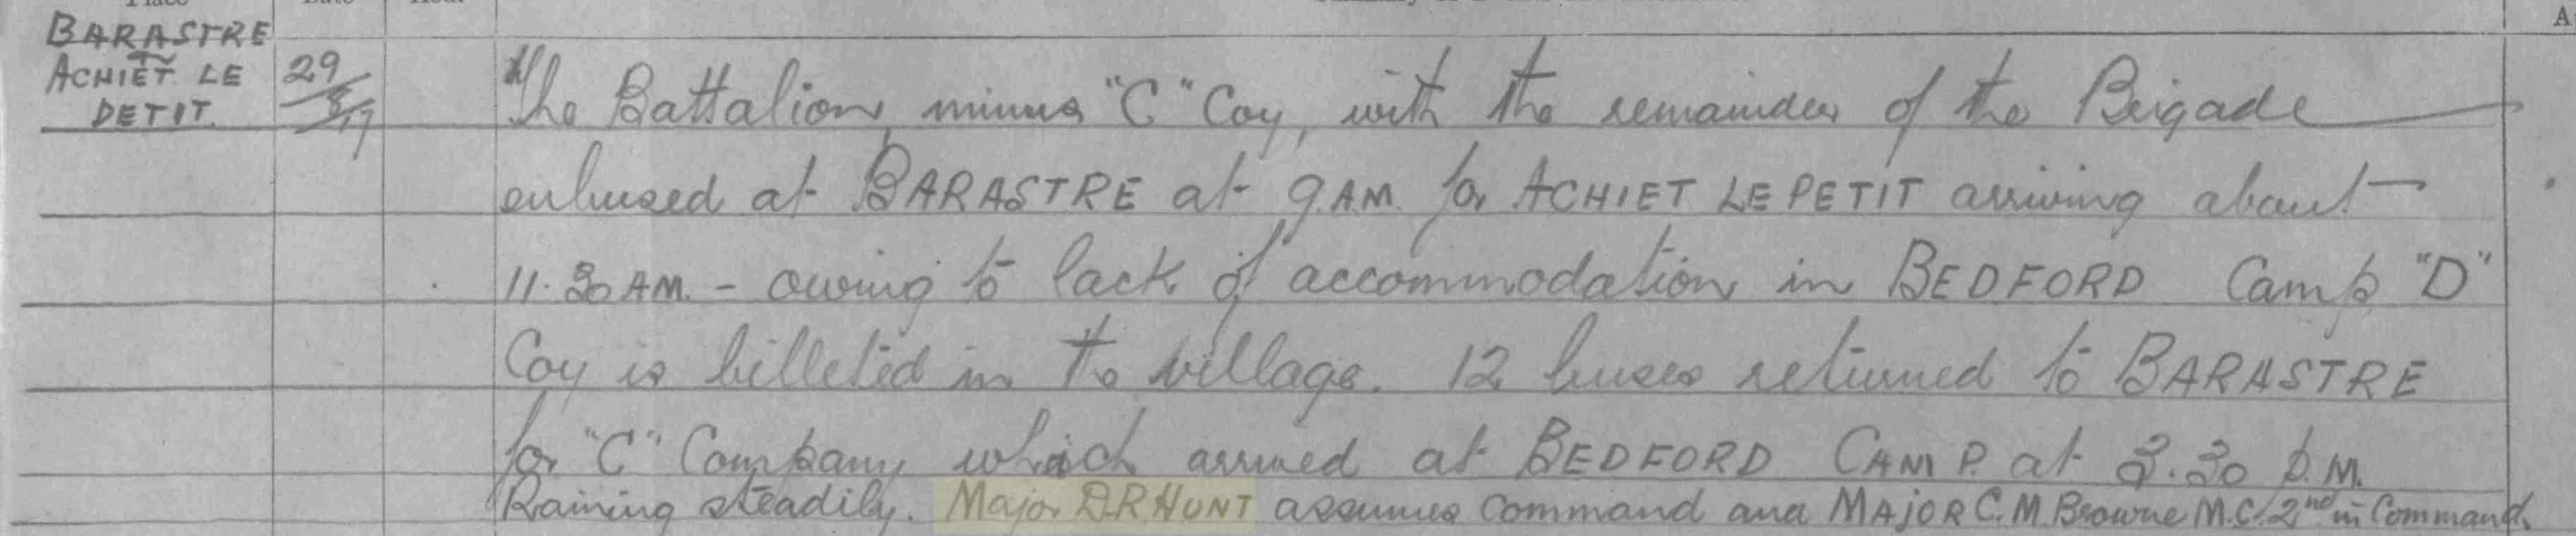 Place Date Hour
BARASTRE
ACHIET LE
PETIT.
29/8/17
The Battalion, minus "C" Coy, with the remainder of the Brigade
enbused at BARASTRE at 9 A.M. for ACHIET LE PETIT arriving about
11.30 AM. - owing to lack of accommodation in BEDFORD Camp "D"
Coy is billeted in the village. 12 buses returned to BARASTRE
for "C" Company which arrived at BEDFORD CAMP. at 3.30 P.M.
Raining steadily. Major D.R HUNT assumes command and MAJOR C.M. Browne M.C. 2nd in Command.